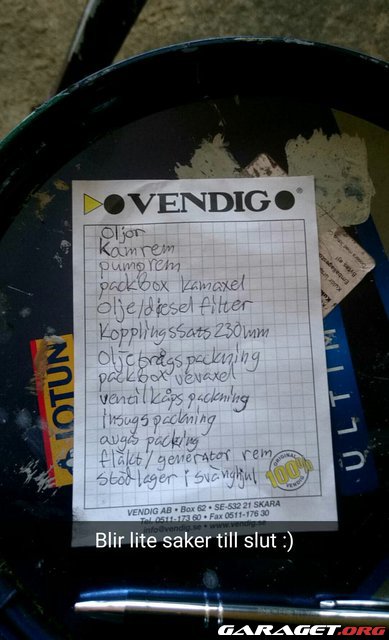 VENDIG
Oljor
Kamrem
pumprem
packbox kamaxel
Olje/diesel filter
Kopplingssats 230mm
Oljetrågspackning
packbox vevaxel
ventilkåpspackning
insugspackning
avgaspackning
fläkt/generator rem
stödlager i svänghjul
ORIGINAL
100%
VENDIG
VENDIG AB • Box 62 • SE-532 21 SKARA
Tel. 0511-173 60 • Fax 0511-176 30
info@vendig.se • www.vendig.se
JOTUN
ULTI
Blir lite saker till slut :)
GARAGET.ORG